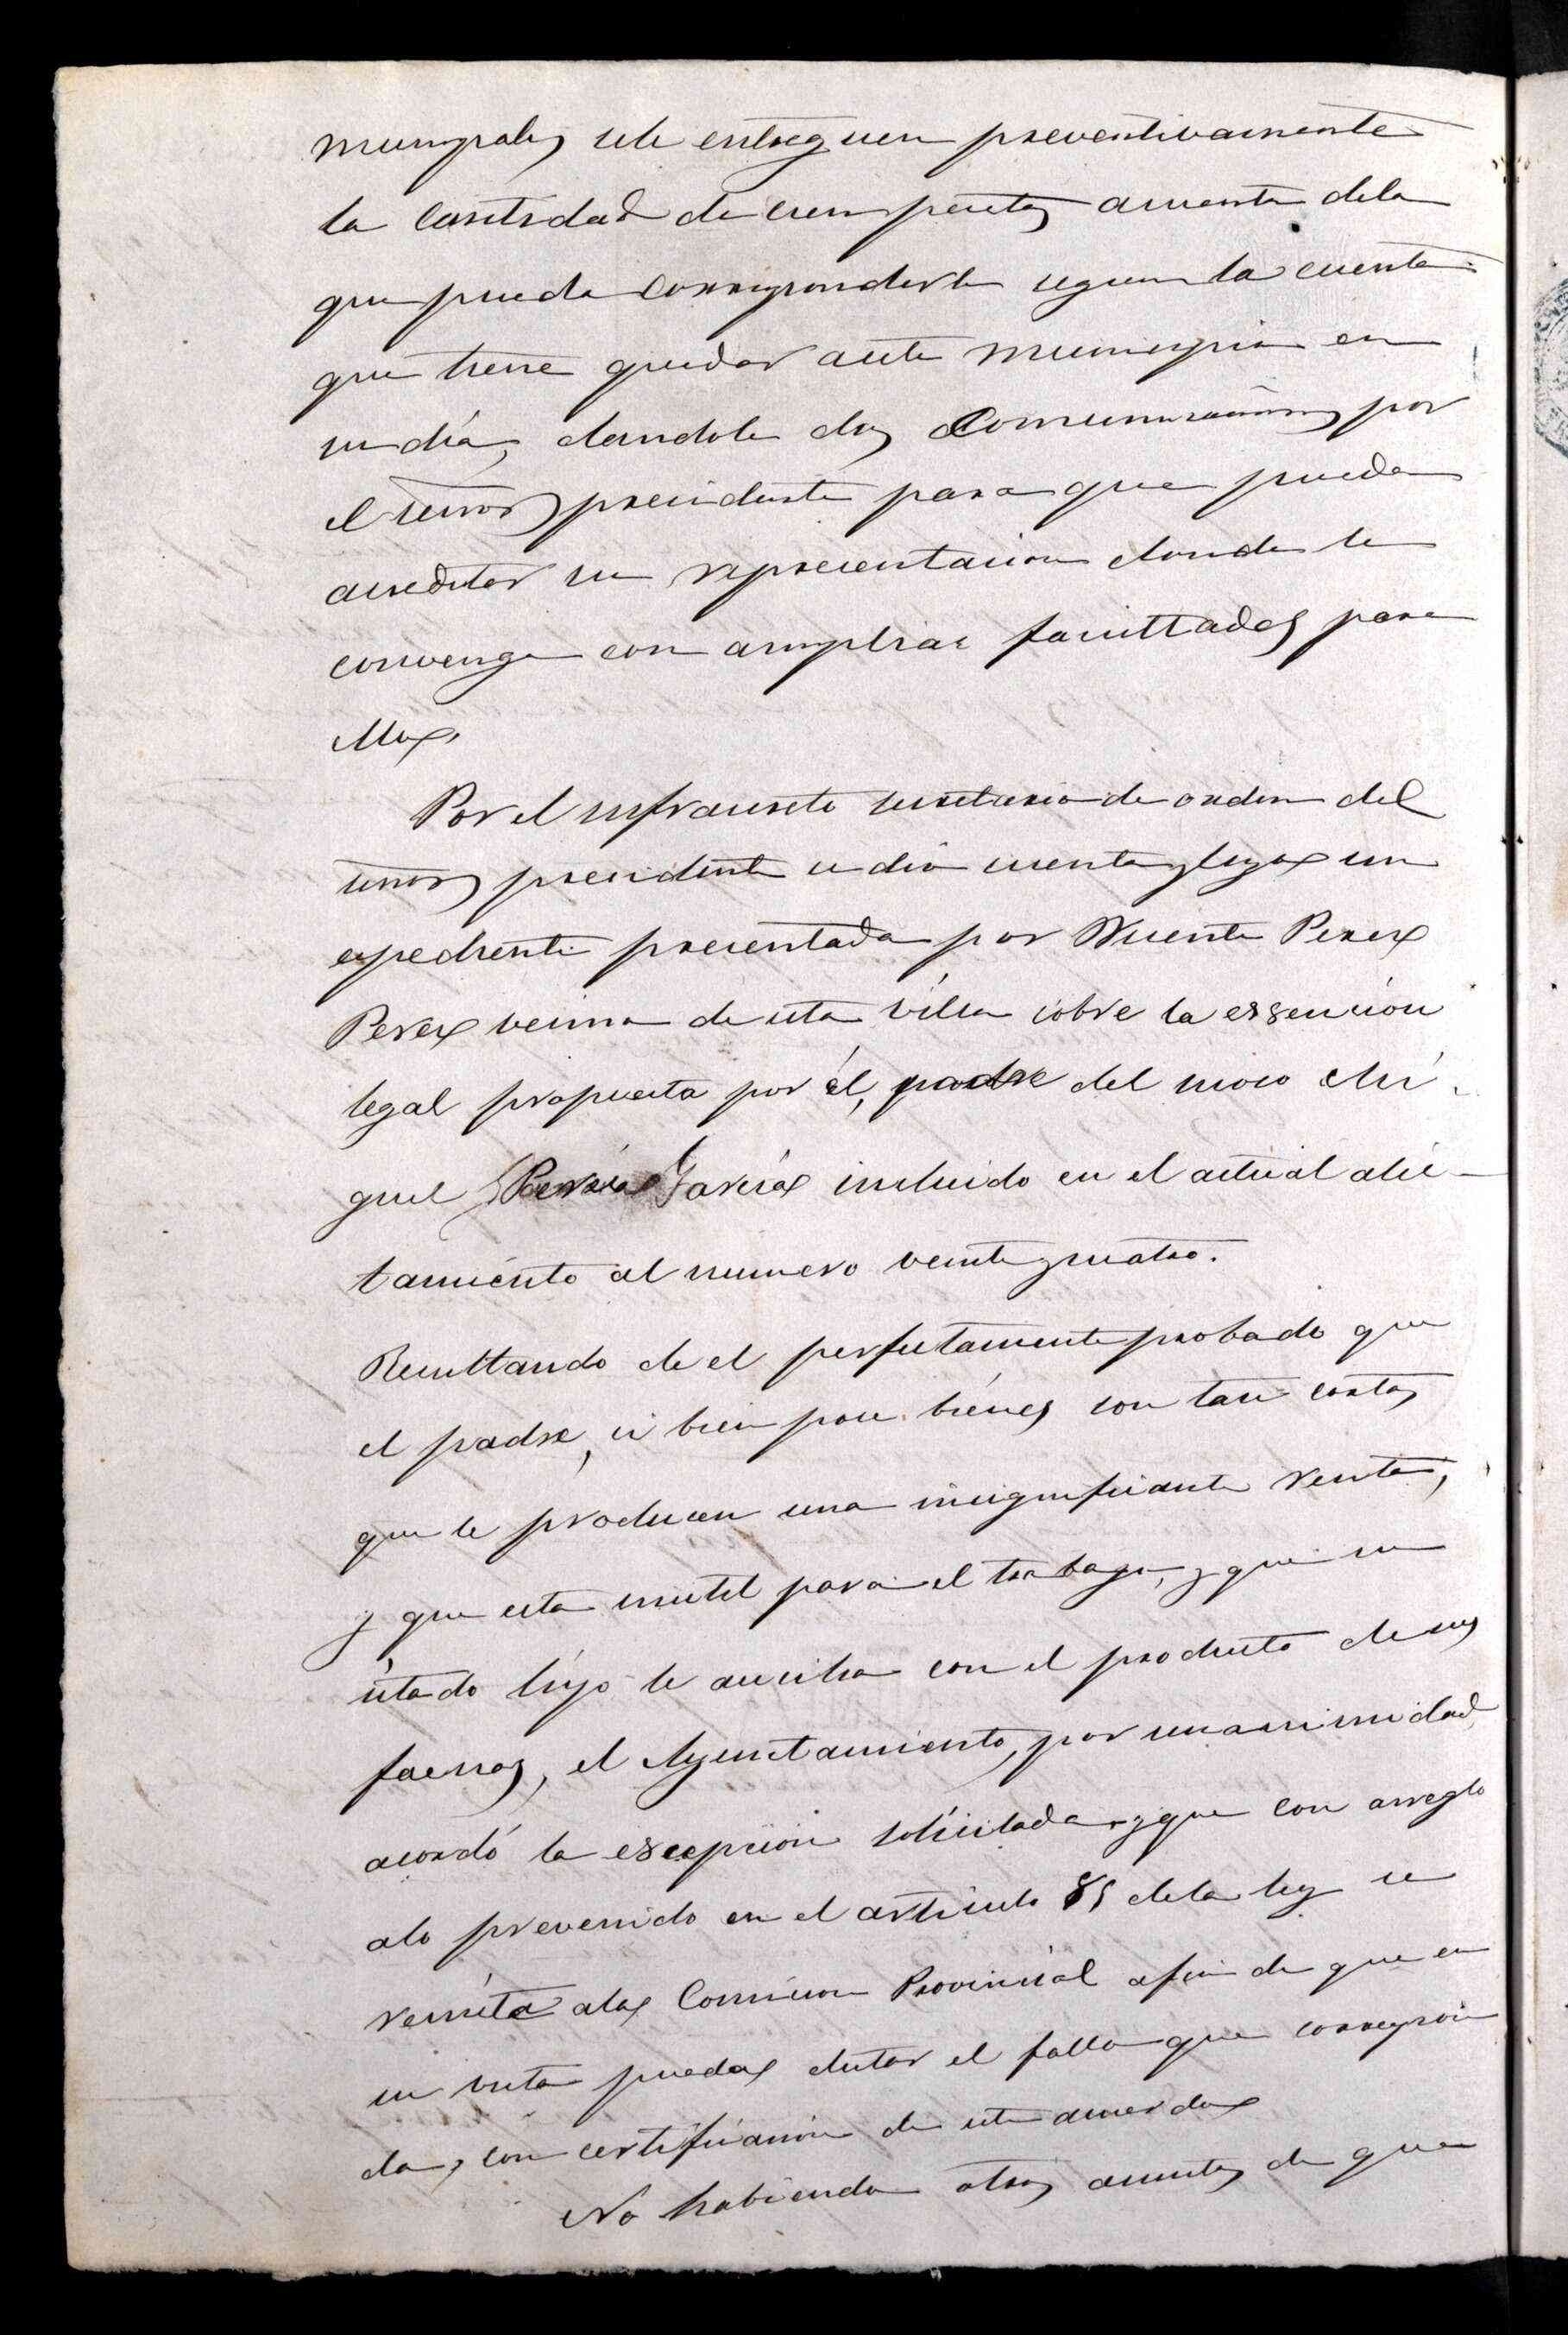 municipales sele entreguen preventivamente
la cantidad de cien pesetas acuenta dela
que pueda corresponderle segun la cuenta
que tiene que dar a este municipio en
su día, dandole dos comunicaciones por
el señor presidente para que pueda
acreditar su representacion donde le
convenga con amplias facultades para
ello.
Por el infrascrito secretario de orden del
señor presidente se dio cuenta y leyo un
espediente presentada por Vicente Perez
Perez vecino de esta villa sobre la essencion
legal propuesta por él, padre del mozo Mi-
guel Perez Garcia incluido en el actual alis-
tamiento al numero veinte y cuatro.
Resultando de el perfectamente probado que
el padre, si bien posee bienes son tan cortos
que le producen una insignificante renta,
y que esta inutil para el trabajo, y que su
citado hijo le aucilia con el producto de sus
faenas, el Ayuntamiento, por unanimidad
acordó la escepcion solicitada y que con arreglo
alo prevenido en el articulo 85 dela ley se
remita ala Comision Provincial afin de que en
su vista pueda dictar el fallo que correspon
da, con certificacion de este acuerdo
No habiendo otros asuntos de que